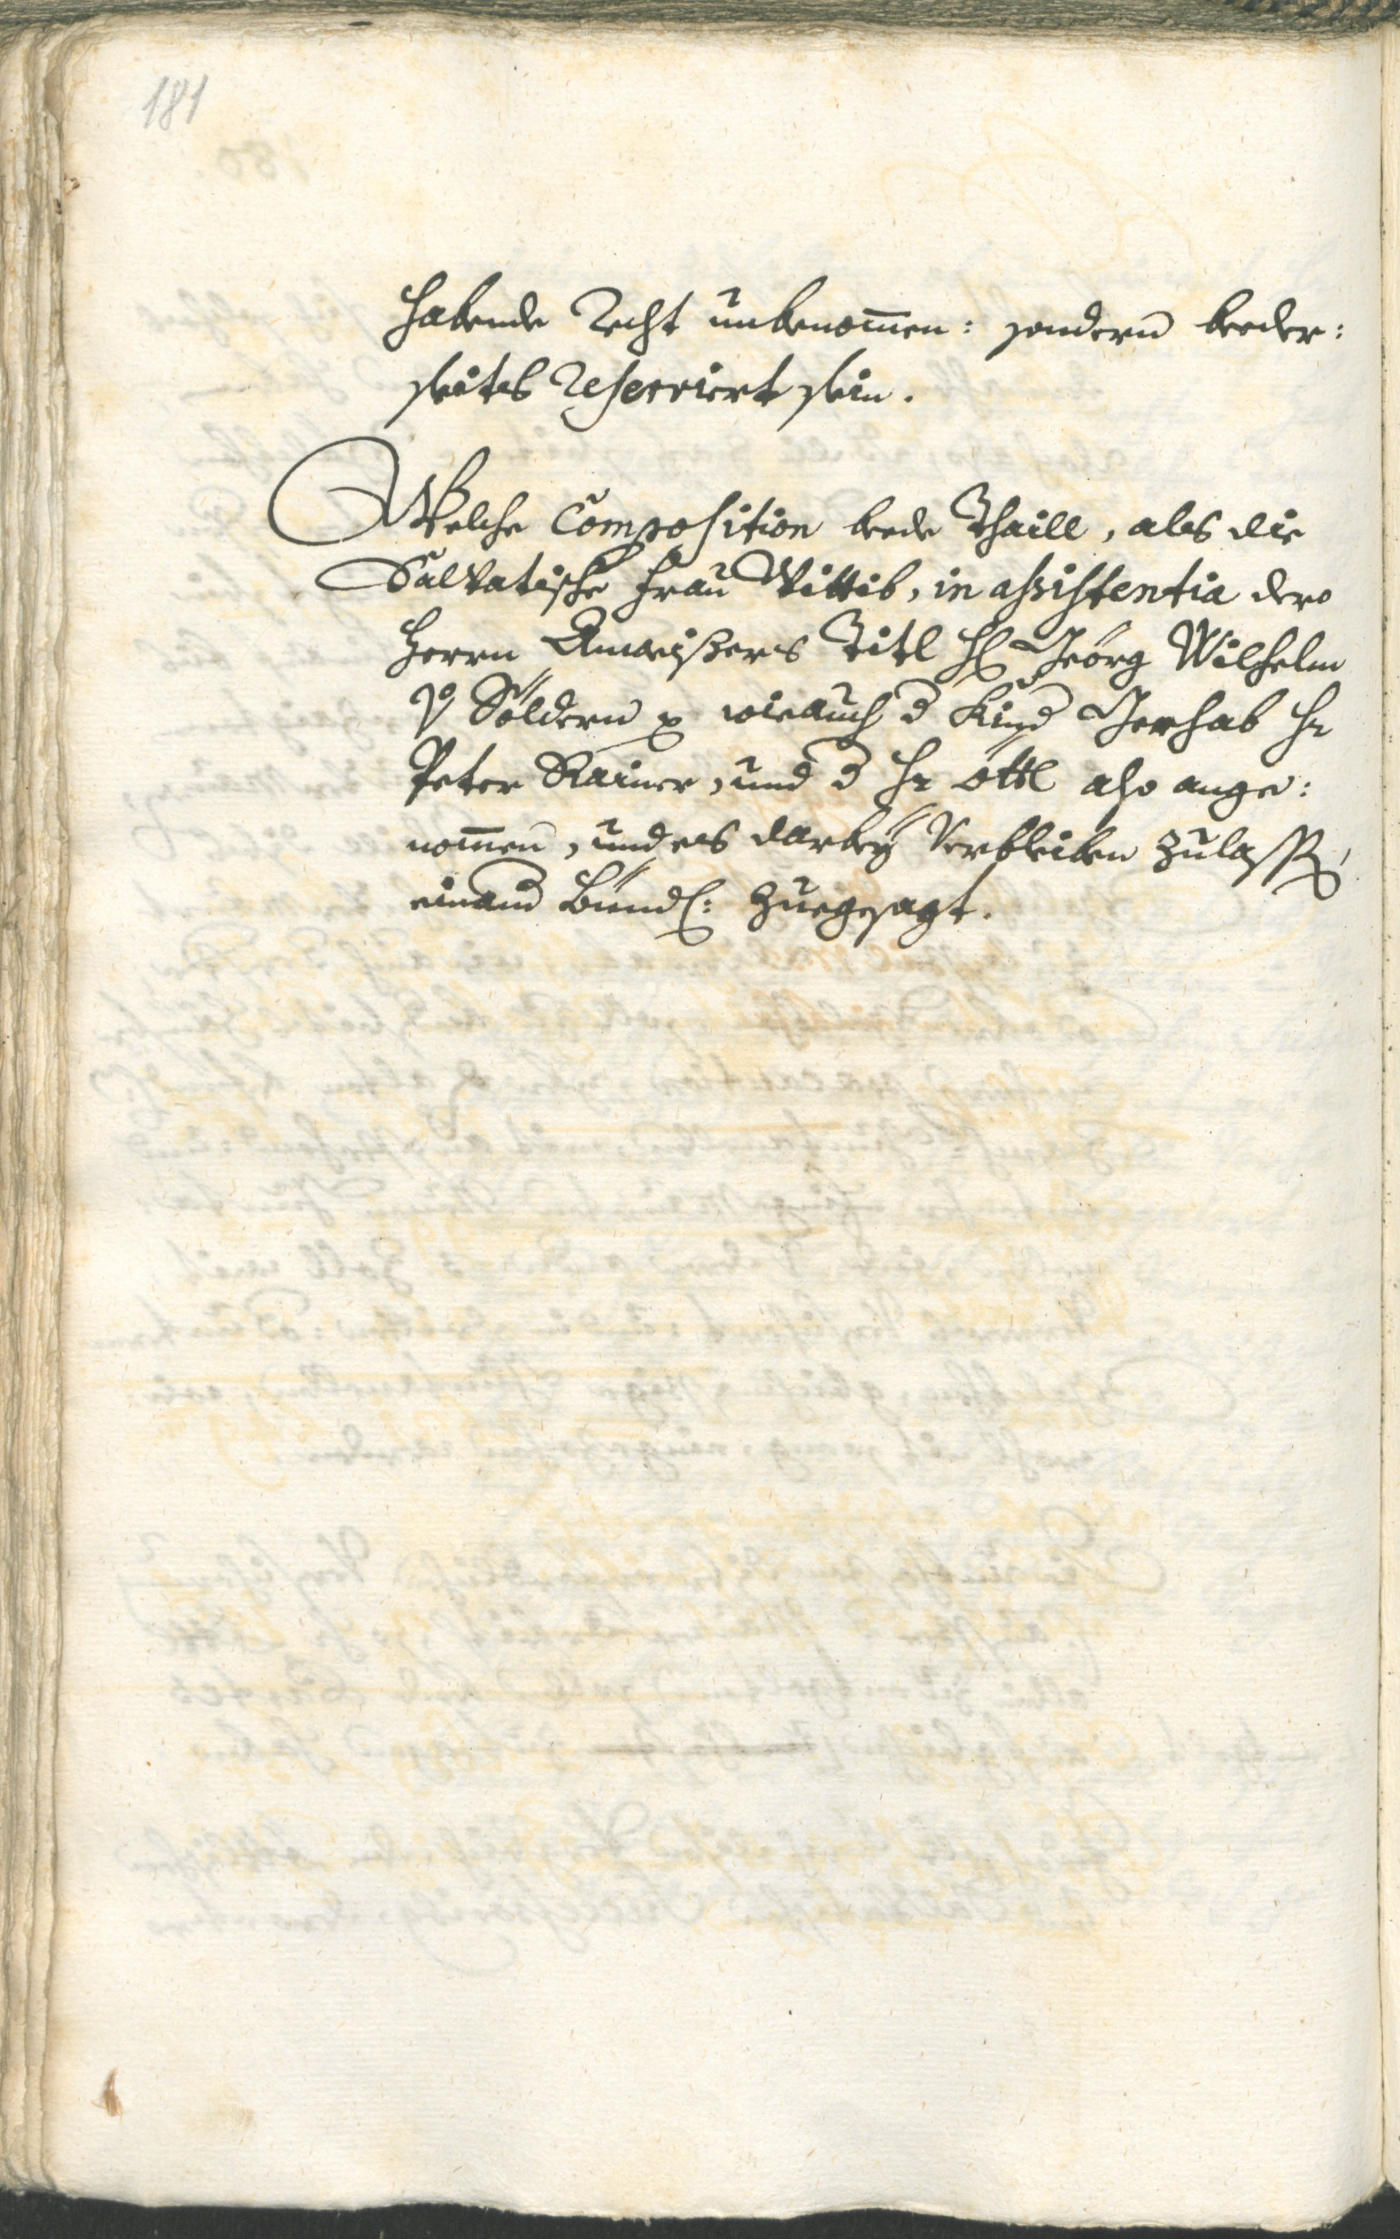 181
habende Recht unbenom̄en: sondern beeder:
seits Reserviert sein.
Welche Composition beede Thaill, als die
Salvatische Frau Wittib, in assistentia dero
Herrn Anweisers Titl H: Georg Wilhelm
v: Söldern p wie auch d Kind Gerhab Hr
Peter Rainer, und d Hr Öttl also ange:
nom̄en, und es darbey Verbleiben zulassen,
einand Bündl: zuegesagt.